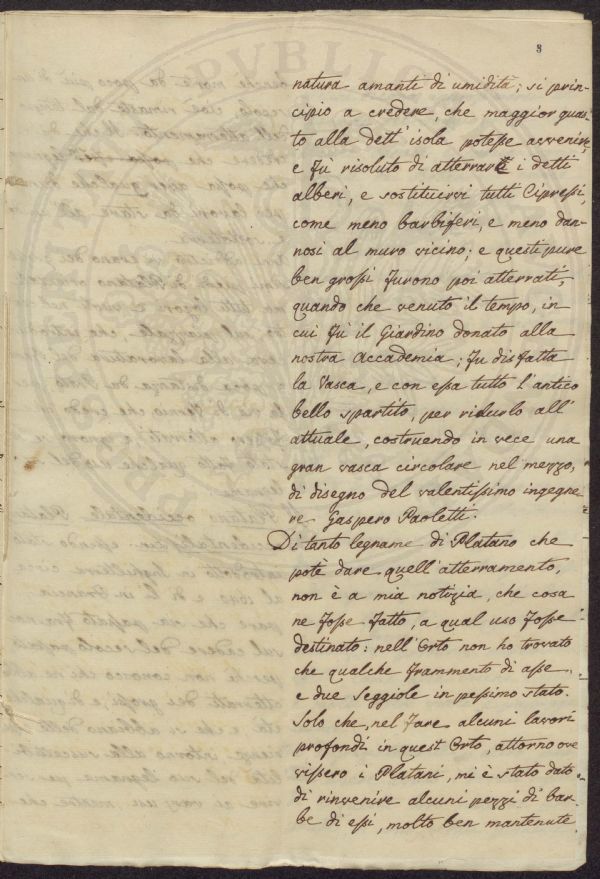 8
natura amanti di umidità; si prin-
cipio a credere, che maggior guas-
to alla dett' isola potesse avvenire,
e fù risoluto di atterrare i detti
alberi, e sostituirvi tutti Cipressi,
come meno barbiferi, e meno dan-
nosi al muro vicino; e questi pure
ben grossi furono poi atterrati,
quando che venuto il tempo, in
cui fù il Giardino donato alla
nostra Accademia; fu disfatta
la Vasca, e con essa tutto l'antico
bello spartito, per ridurlo all'
attuale, costruendo in vece una
gran vasca circolare nel mezzo,
di disegno del valentissimo ingegne-
re Gaspero Paoletti.
Di tanto legname di Platano che
potè dare quell'atterramento,
non è a mia notizia, che cosa
ne fosse fatto, a qual uso fosse
destinato: nell'Orto non ho trovato
che qualche frammento di asse
e due seggiole in pessimo stato.
Solo che, nel fare alcuni lavori
profondi in quest'Orto, attorno ove
vissero i Platani, mi è stato dato
di rinvenire alcuni pezzi di bar-
be di essi, molto ben mantenute